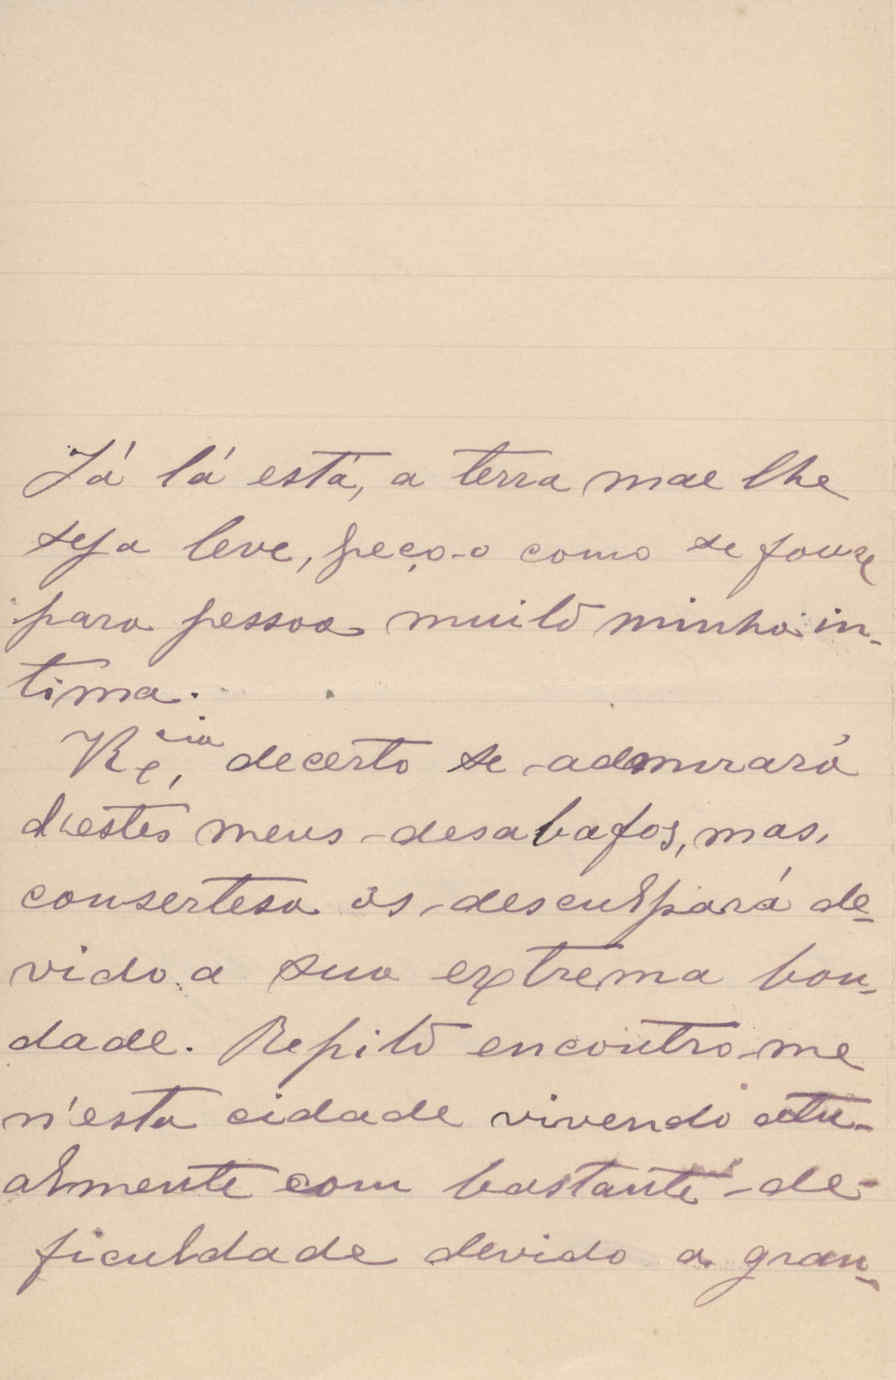 Já lá está, a terra mae lhe
seja leve, peço-o como se fouse
para pessoa muito minha in-
tima.
V Ex.cia decerto se admirará
d'estes meus desabafos, mas,
conserteza os desculpará de-
vido a sua extrema bon-
dade. Repito encontro-me
n'esta cidade vivendo atu-
almente com bastante de-
ficuldade devido a gran-